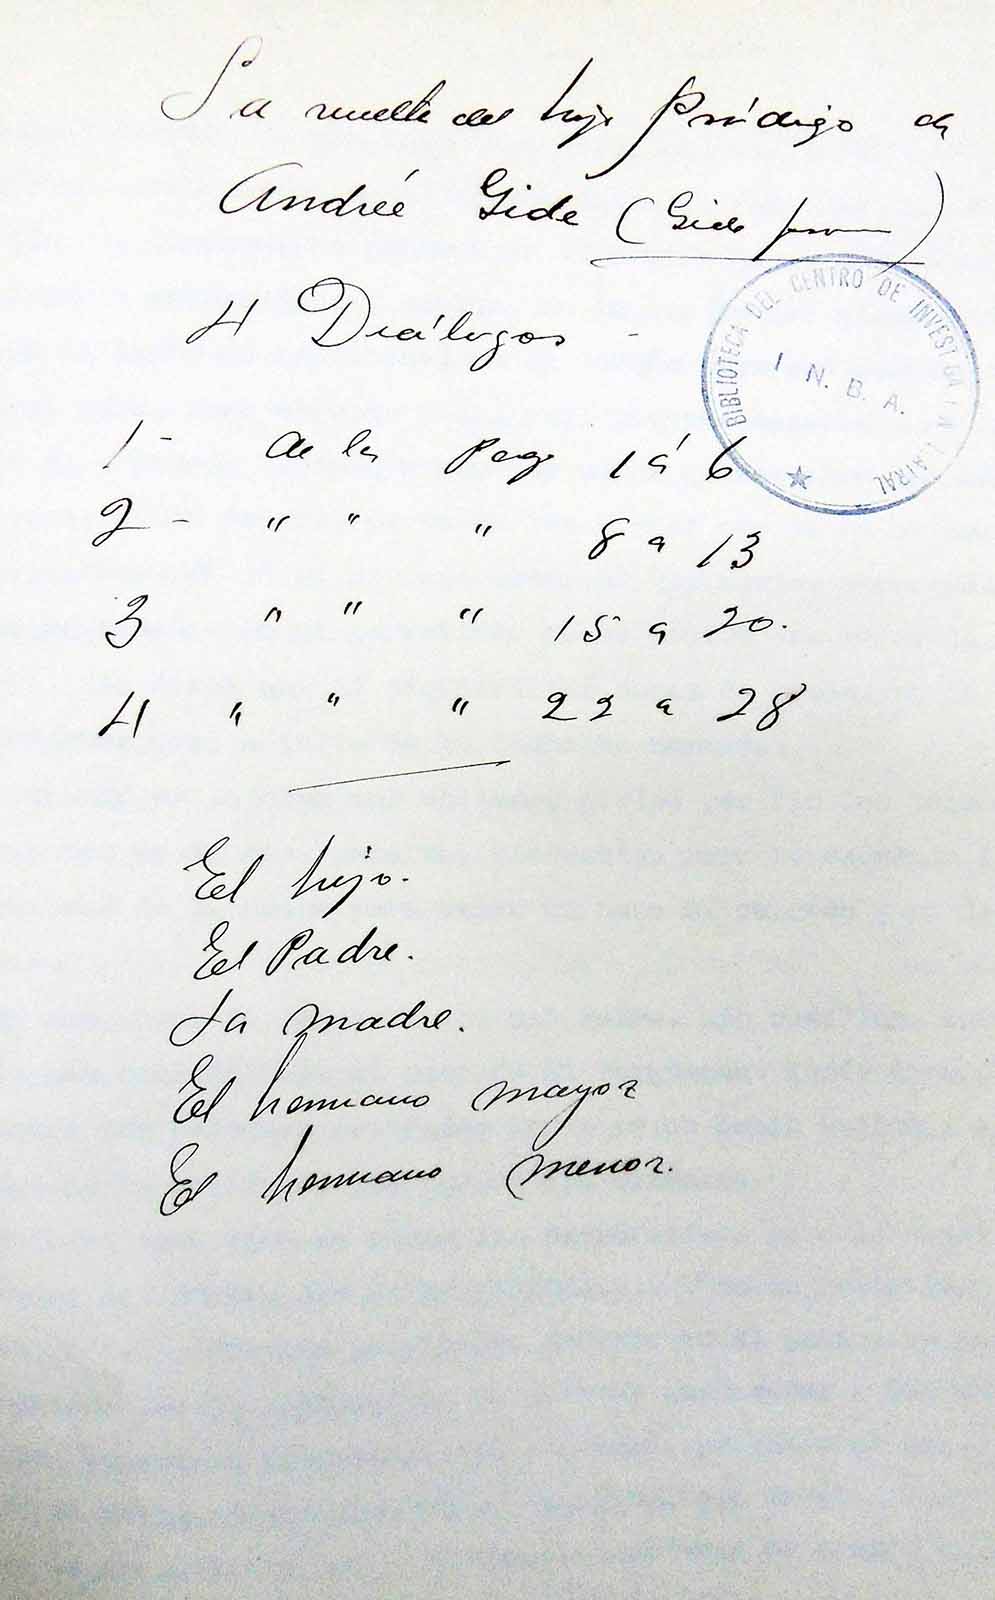 La vuelta del hijo Pródigo de
Andreé Gide (Gide
4 Diálogos -
BIBLIOTECA DEL CENTRO DE INVESTIGA
I. N. B. A.
1 - de la pag 1 á 6
2 - " " " 8 a 13
3 " " " 15 a 20.
4 " " " 22 a 28
El hijo.
El Padre.
La madre.
El hermano mayor
El hermano menor.